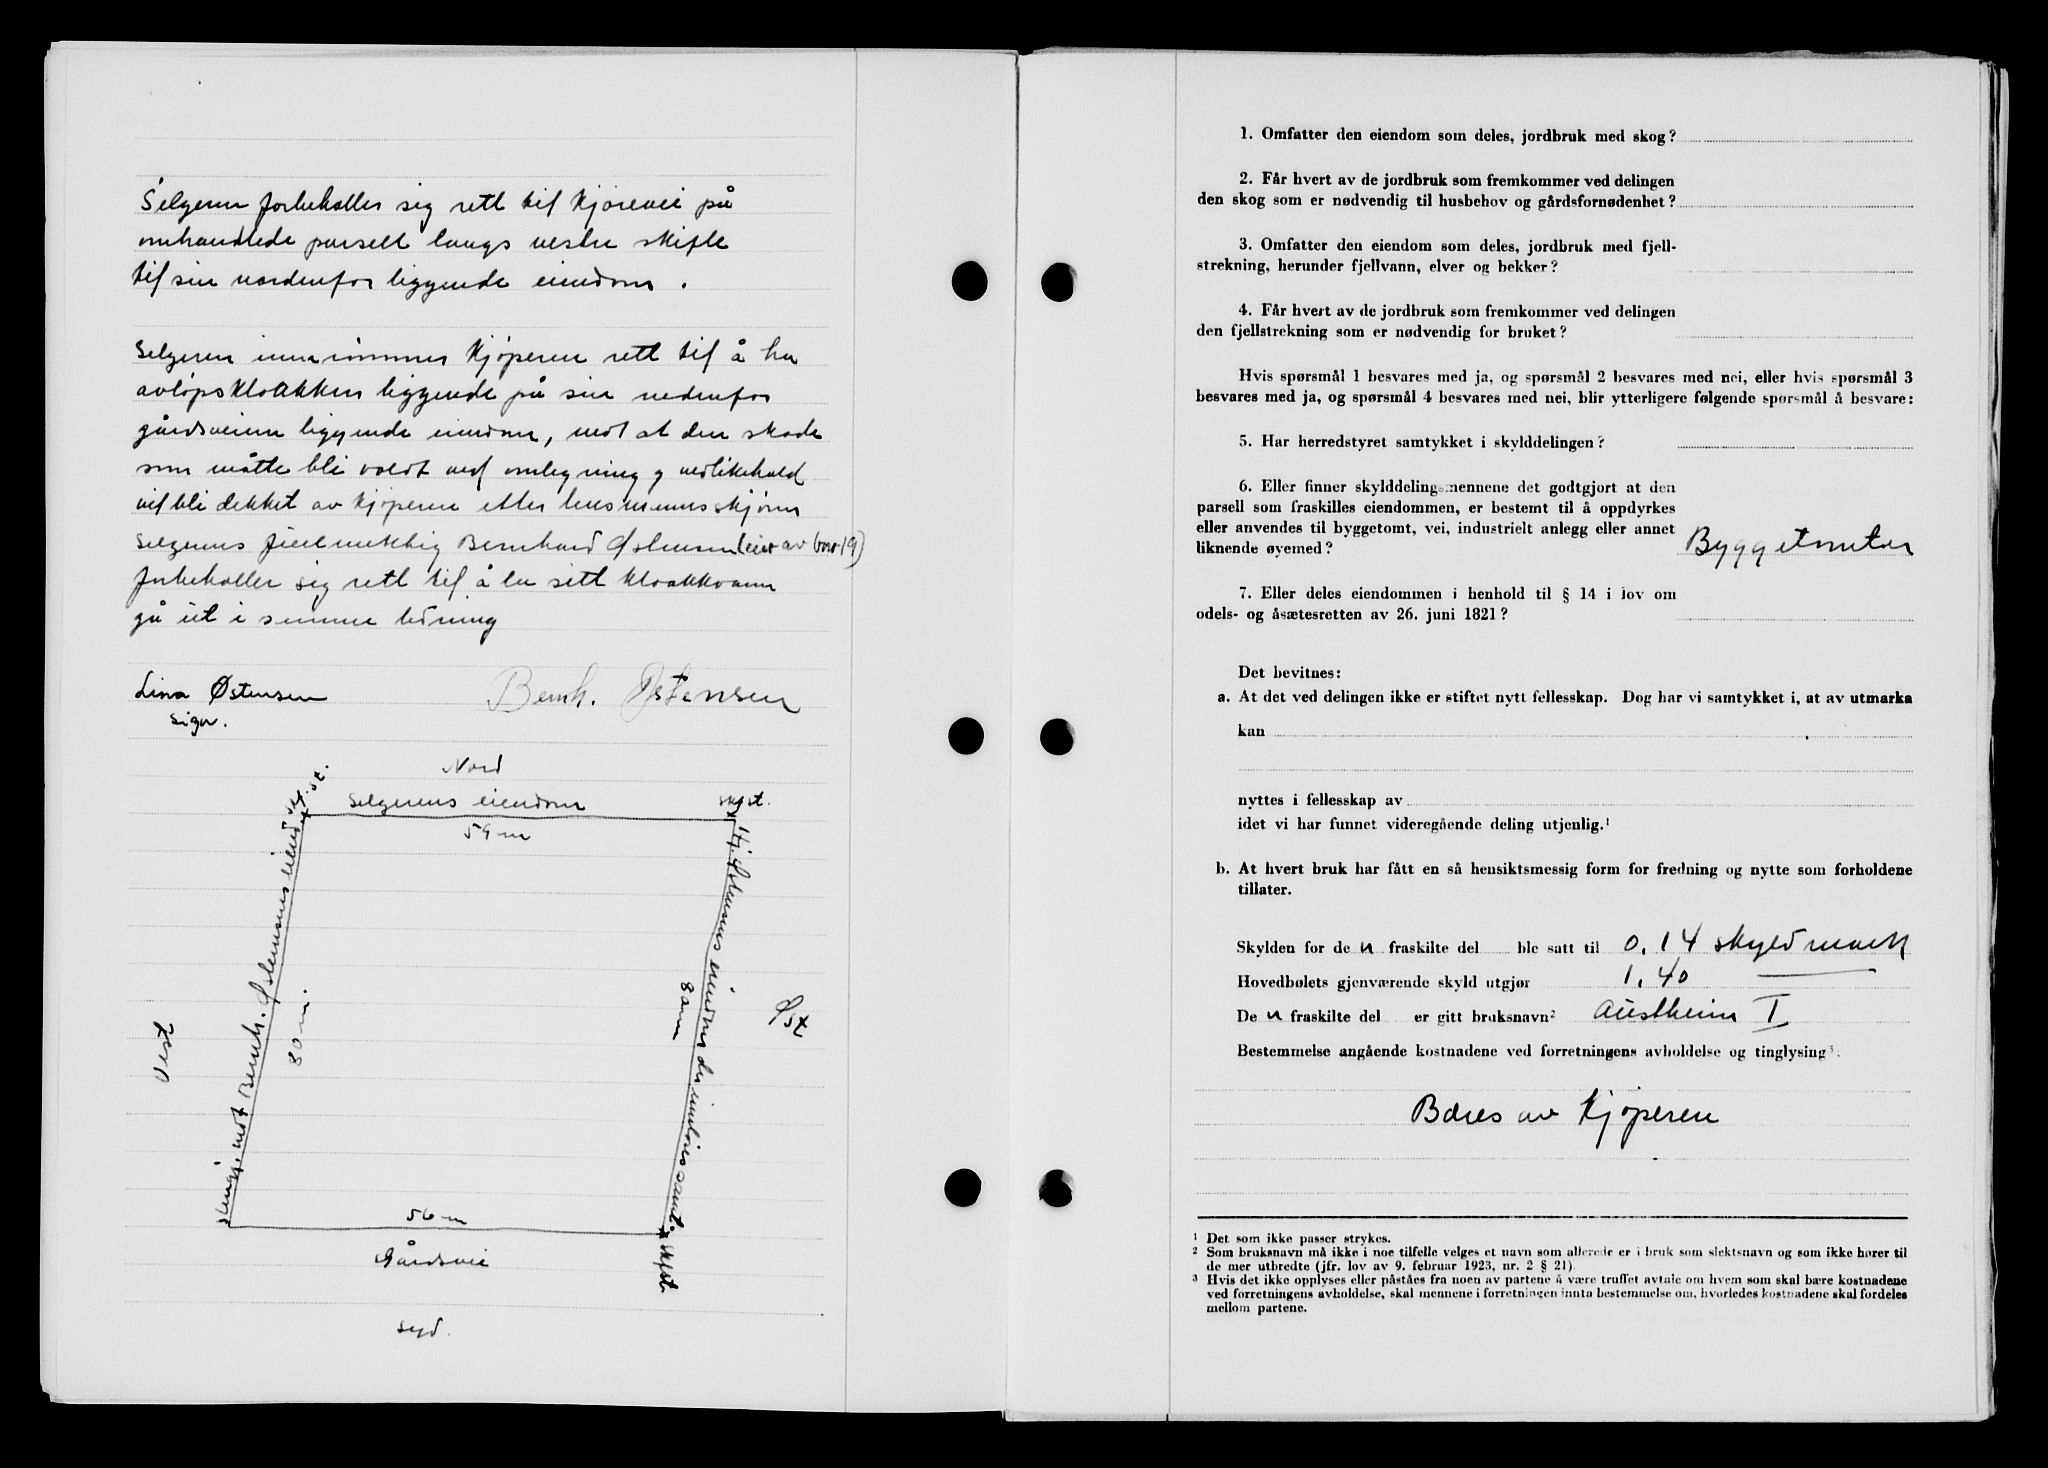 Selgeren forbeholler sig rett til kjørevei på
omhandlede parsell langs vestre skifte
til sin nordenfor liggende eiendom .
Selgeren innrømmer kjøperen rett til å ha
avløpskloakken liggende på sin nedenfor
gårdsveien liggende eiendom, mot at den skade
som måtte bli voldt ved omlegning og vedlikehold
vil bli dekket av kjøperen etter lensmannsskjønn
Selgerens fullmektig Bernhard Østensen (eier av bnr 19)
forbeholler sig rett til å la sitt kloakkvann
gå ut i samme ledning
Lina Østensen
sign.
Bernh. Østensen
Nord
Selgerens eiendom
skj. st.
54 m
Vest
80 m
80 m
Øst
56 m
Gårdsvei
skjst.
syd.
1. Omfatter den eiendom som deles, jordbruk med skog?
2. Får hvert av de jordbruk som fremkommer ved delingen
den skog som er nødvendig til husbehov og gårdsfornødenhet?
3. Omfatter den eiendom som deles, jordbruk med fjell-
strekning, herunder fjellvann, elver og bekker?
4. Får hvert av de jordbruk som fremkommer ved delingen
den fjellstrekning som er nødvendig for bruket?
Hvis spørsmål 1 besvares med ja, og spørsmål 2 besvares med nei, eller hvis spørsmål 3
besvares med ja, og spørsmål 4 besvares med nei, blir ytterligere følgende spørsmål å besvare:
5. Har herredstyret samtykket i skylddelingen?
6. Eller finner skylddelingsmennene det godtgjort at den
parsell som fraskilles eiendommen, er bestemt til å oppdyrkes
eller anvendes til byggetomt, vei, industrielt anlegg eller annet
liknende øyemed? Byggetomter
7. Eller deles eiendommen i henhold til § 14 i lov om
odels- og åsætesretten av 26. juni 1821?
Det bevitnes:
a. At det ved delingen ikke er stiftet nytt fellesskap. Dog har vi samtykket i, at av utmarka
kan
nyttes i fellesskap av
idet vi har funnet videregående deling utjenlig.¹
b. At hvert bruk har fått en så hensiktsmessig form for fredning og nytte som forholdene
tillater.
Skylden for de n fraskilte del ble satt til 0.14 skyldmark
Hovedbølets gjenværende skyld utgjør 1.40
De n fraskilte del er gitt bruksnavn² Austheim I
Bestemmelse angående kostnadene ved forretningens avholdelse og tinglysing³.
Bæres av kjøperen
¹ Det som ikke passer strykes.
² Som bruksnavn må ikke i noe tilfelle velges et navn som allerede er i bruk som slektsnavn og som ikke hører til
de mer utbredte (jfr. lov av 9. februar 1923, nr. 2 § 21).
³ Hvis det ikke opplyses eller påståes fra noen av partene å være truffet avtale om hvem som skal bære kostnadene
ved forretningens avholdelse, skal mennene i forretningen innta bestemmelse om, hvorledes kostnadene skal fordeles
mellom partene.